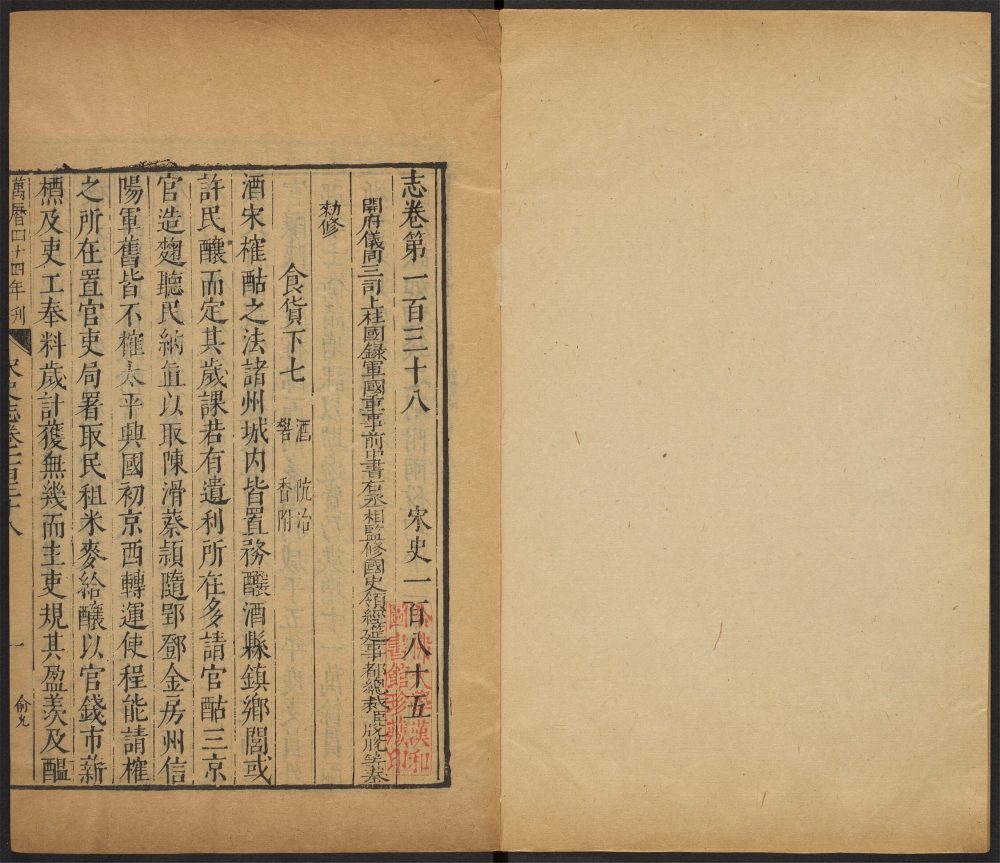 志卷第一百三十八 宋史一百八十五
開府儀同三司上柱國錄軍國重事前中書右丞相監修國史領經筵事都總裁臣脫脫等奉
勑修
食貨下七 酒 阬冶
礬 香附
酒宋榷酤之法諸州城内皆置務釀酒縣鎮鄉閭或
許民釀而定其歲課若有遺利所在多請官酤三京
官造麴聽民納直以取陳滑蔡潁隨郢鄧金房州信
陽軍舊皆不榷太平興國初京西轉運使程能請榷
之所在置官吏局署取民租米麥給釀以官錢市薪
槱及吏工奉料歲計獲無幾而主吏規其盈羨及醞
萬曆四十四年刊
宋史志卷一百三十八
一
俞允
哈佛大學漢和
圖書館珍藏印